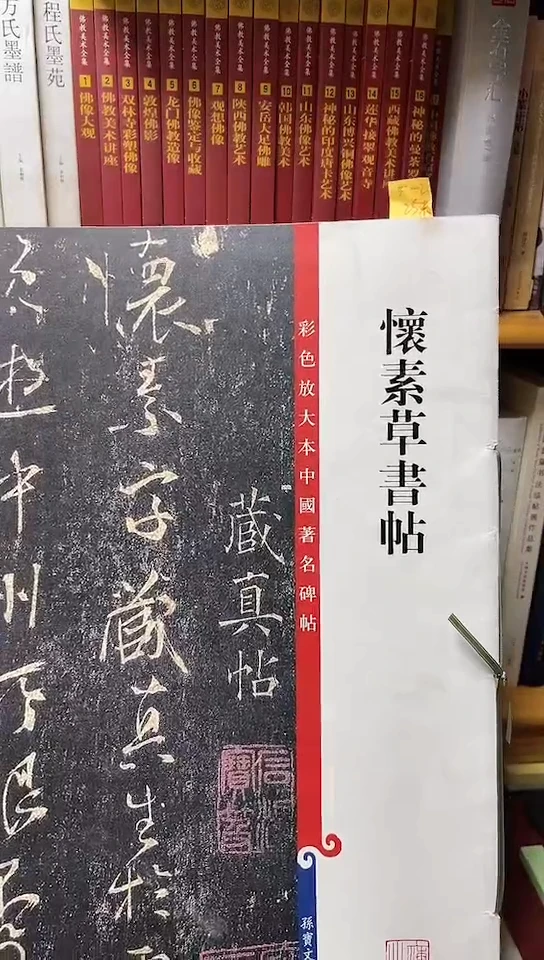 方氏墨譜
程氏墨苑
佛教美术全集 1 佛像大观
佛教美术全集 2 佛教美术讲座
佛教美术全集 3 双林寺彩塑佛像
佛教美术全集 4 敦煌佛影
佛教美术全集 5 龙门佛教造像
佛教美术全集 6 佛像鉴定与收藏
佛教美术全集 7 观想佛像
佛教美术全集 8 陕西佛教艺术
佛教美术全集 9 安岳大足佛雕
佛教美术全集 10 韩国佛教美术
佛教美术全集 11 山东佛像艺术
佛教美术全集 12 神秘的印度唐卡艺术
佛教美术全集 13 山东博兴铜佛像艺术
佛教美术全集 14
佛教美术全集 15 西藏佛教美术
佛教美术全集 16 神秘的曼荼罗
懷素草書帖
彩色放大本中國著名碑帖
孫寶文
藏真帖
懷素字藏真生於
遊中州所恨不